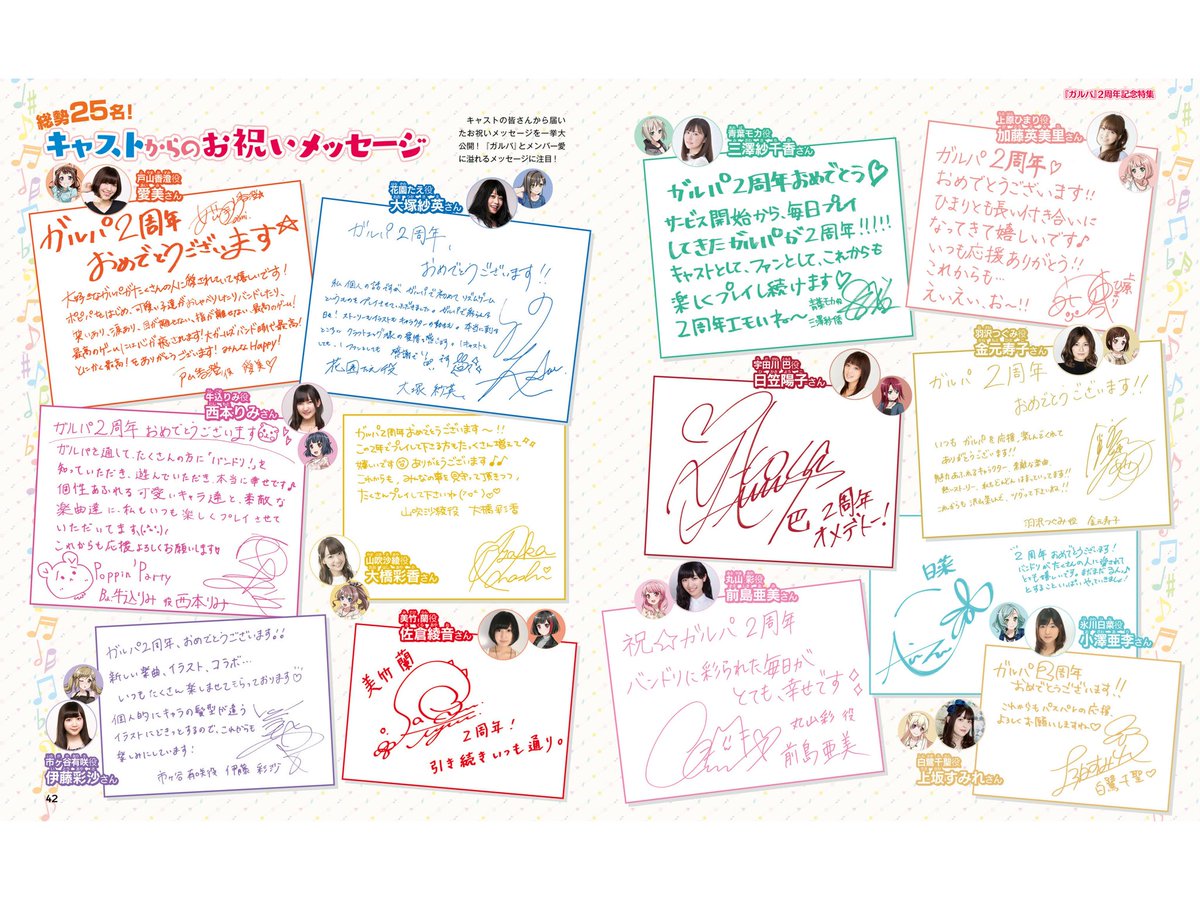 総勢25名!
キャストからのお祝いメッセージ
キャストの皆さんから届い
たお祝いメッセージを一挙大
公開!『ガルパ』とメンバー愛
に溢れるメッセージに注目!
『ガルパ』2周年記念特集
戸山香澄役
愛美さん
ガルパ2周年
おめでとうございます☆
大好きなガルパがたくさんの人に愛されていて嬉しいです!
最高のゲーム!
とにかく最高!
みんなHappy!
戸山香澄役 愛美
花園たえ役
大塚紗英さん
ガルパ2周年、
おめでとうございます!!
花園たえ役
大塚紗英
牛込りみ役
西本りみさん
ガルパ2周年おめでとうございます
ガルパを通して、たくさんの方に"バンドリ!"を
知っていただき、遊んでいただき、本当に幸せです♪
個性あふれる可愛いキャラ達と、素敵な
楽曲達に、私もいつも楽しくプレイさせて
いただいてます
これからも応援よろしくお願いします
Poppin'Party
Ba.牛込りみ役 西本りみ
ガルパ2周年おめでとうございます〜!!
この2年でプレイして下さる方もたくさん増えて
嬉しいです ありがとうございます♪♪
これからも、みんなの事を見守って頂きつつ、
たくさんプレイして下さいね
山吹沙綾役 大橋彩香
山吹沙綾役
大橋彩香さん
市ヶ谷有咲役
伊藤彩沙さん
ガルパ2周年、おめでとうございます!!
新しい楽曲、イラスト、コラボ…
いつもたくさん楽しませてもらっております♡
個人的にキャラの髪型が違う
イラストにどきっとするので、これからも
楽しみにしています!
市ヶ谷有咲役 伊藤彩沙
美竹 蘭役
佐倉綾音さん
美竹蘭
2周年!
引き続きいつも通り。
42
青葉モカ役
三澤紗千香さん
ガルパ2周年おめでとう♡
サービス開始から、毎日プレイ
してきたガルパが2周年!!!!!
キャストとして、ファンとして、これからも
楽しくプレイし続けます♡
2周年エモいね〜
青葉モカ役
三澤紗千香
上原ひまり役
加藤英美里さん
ガルパ2周年♡
おめでとうございます!!
ひまりとも長い付き合いに
なってきて嬉しいです♪
いつも応援ありがとう!!
これからも…
えい、えい、お〜!!
宇田川 巴役
日笠陽子さん
巴 2周年
オメデトー!
羽沢つぐみ役
金元寿子さん
ガルパ2周年
おめでとうございます!!
いつもガルパを応援、楽しんでくれて
ありがとうございます!!
魅力あふれるキャラクター、素敵な楽曲、
羽沢つぐみ役 金元寿子
丸山 彩役
前島亜美さん
祝☆ガルパ2周年
バンドリに彩られた毎日が
とても、幸せです
丸山彩役
前島亜美
日菜
2周年おめでとうございます!
バンドリがたくさんの人に愛されて
とても嬉しいです。
氷川日菜役
小澤亜李さん
白鷺千聖役
上坂すみれさん
ガルパ2周年
おめでとうございます!!
これからもパスパレの応援
よろしくお願いしますね♡
白鷺千聖♡